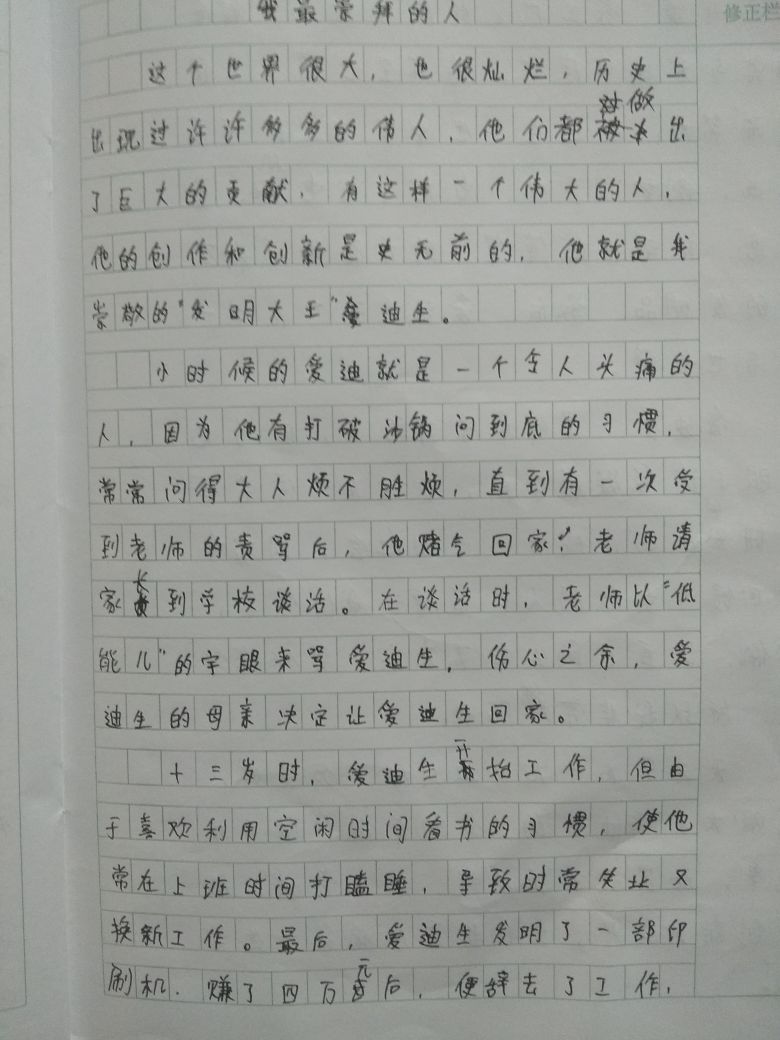 修正栏
我最崇拜的人
这个世界很大，也很灿烂，历史上
出现过许许多多的伟人，他们都做出
了巨大的贡献，有这样一个伟大的人，
他的创作和创新是史无前的，他就是我
崇敬的“发明大王”爱迪生。
小时候的爱迪就是一个令人头痛的
人，因为他有打破沙锅问到底的习惯，
常常问得大人烦不胜烦，直到有一次受
到老师的责骂后，他赌气回家，老师请
家长到学校谈话。在谈话时，老师以“低
能儿”的字眼来骂爱迪生，伤心之余，爱
迪生的母亲决定让爱迪生回家。
十三岁时，爱迪生开始工作，但由
于喜欢利用空闲时间看书的习惯，使他
常在上班时间打瞌睡，导致时常失业又
换新工作。最后，爱迪生发明了一部印
刷机，赚了四万元后，便辞去了工作，